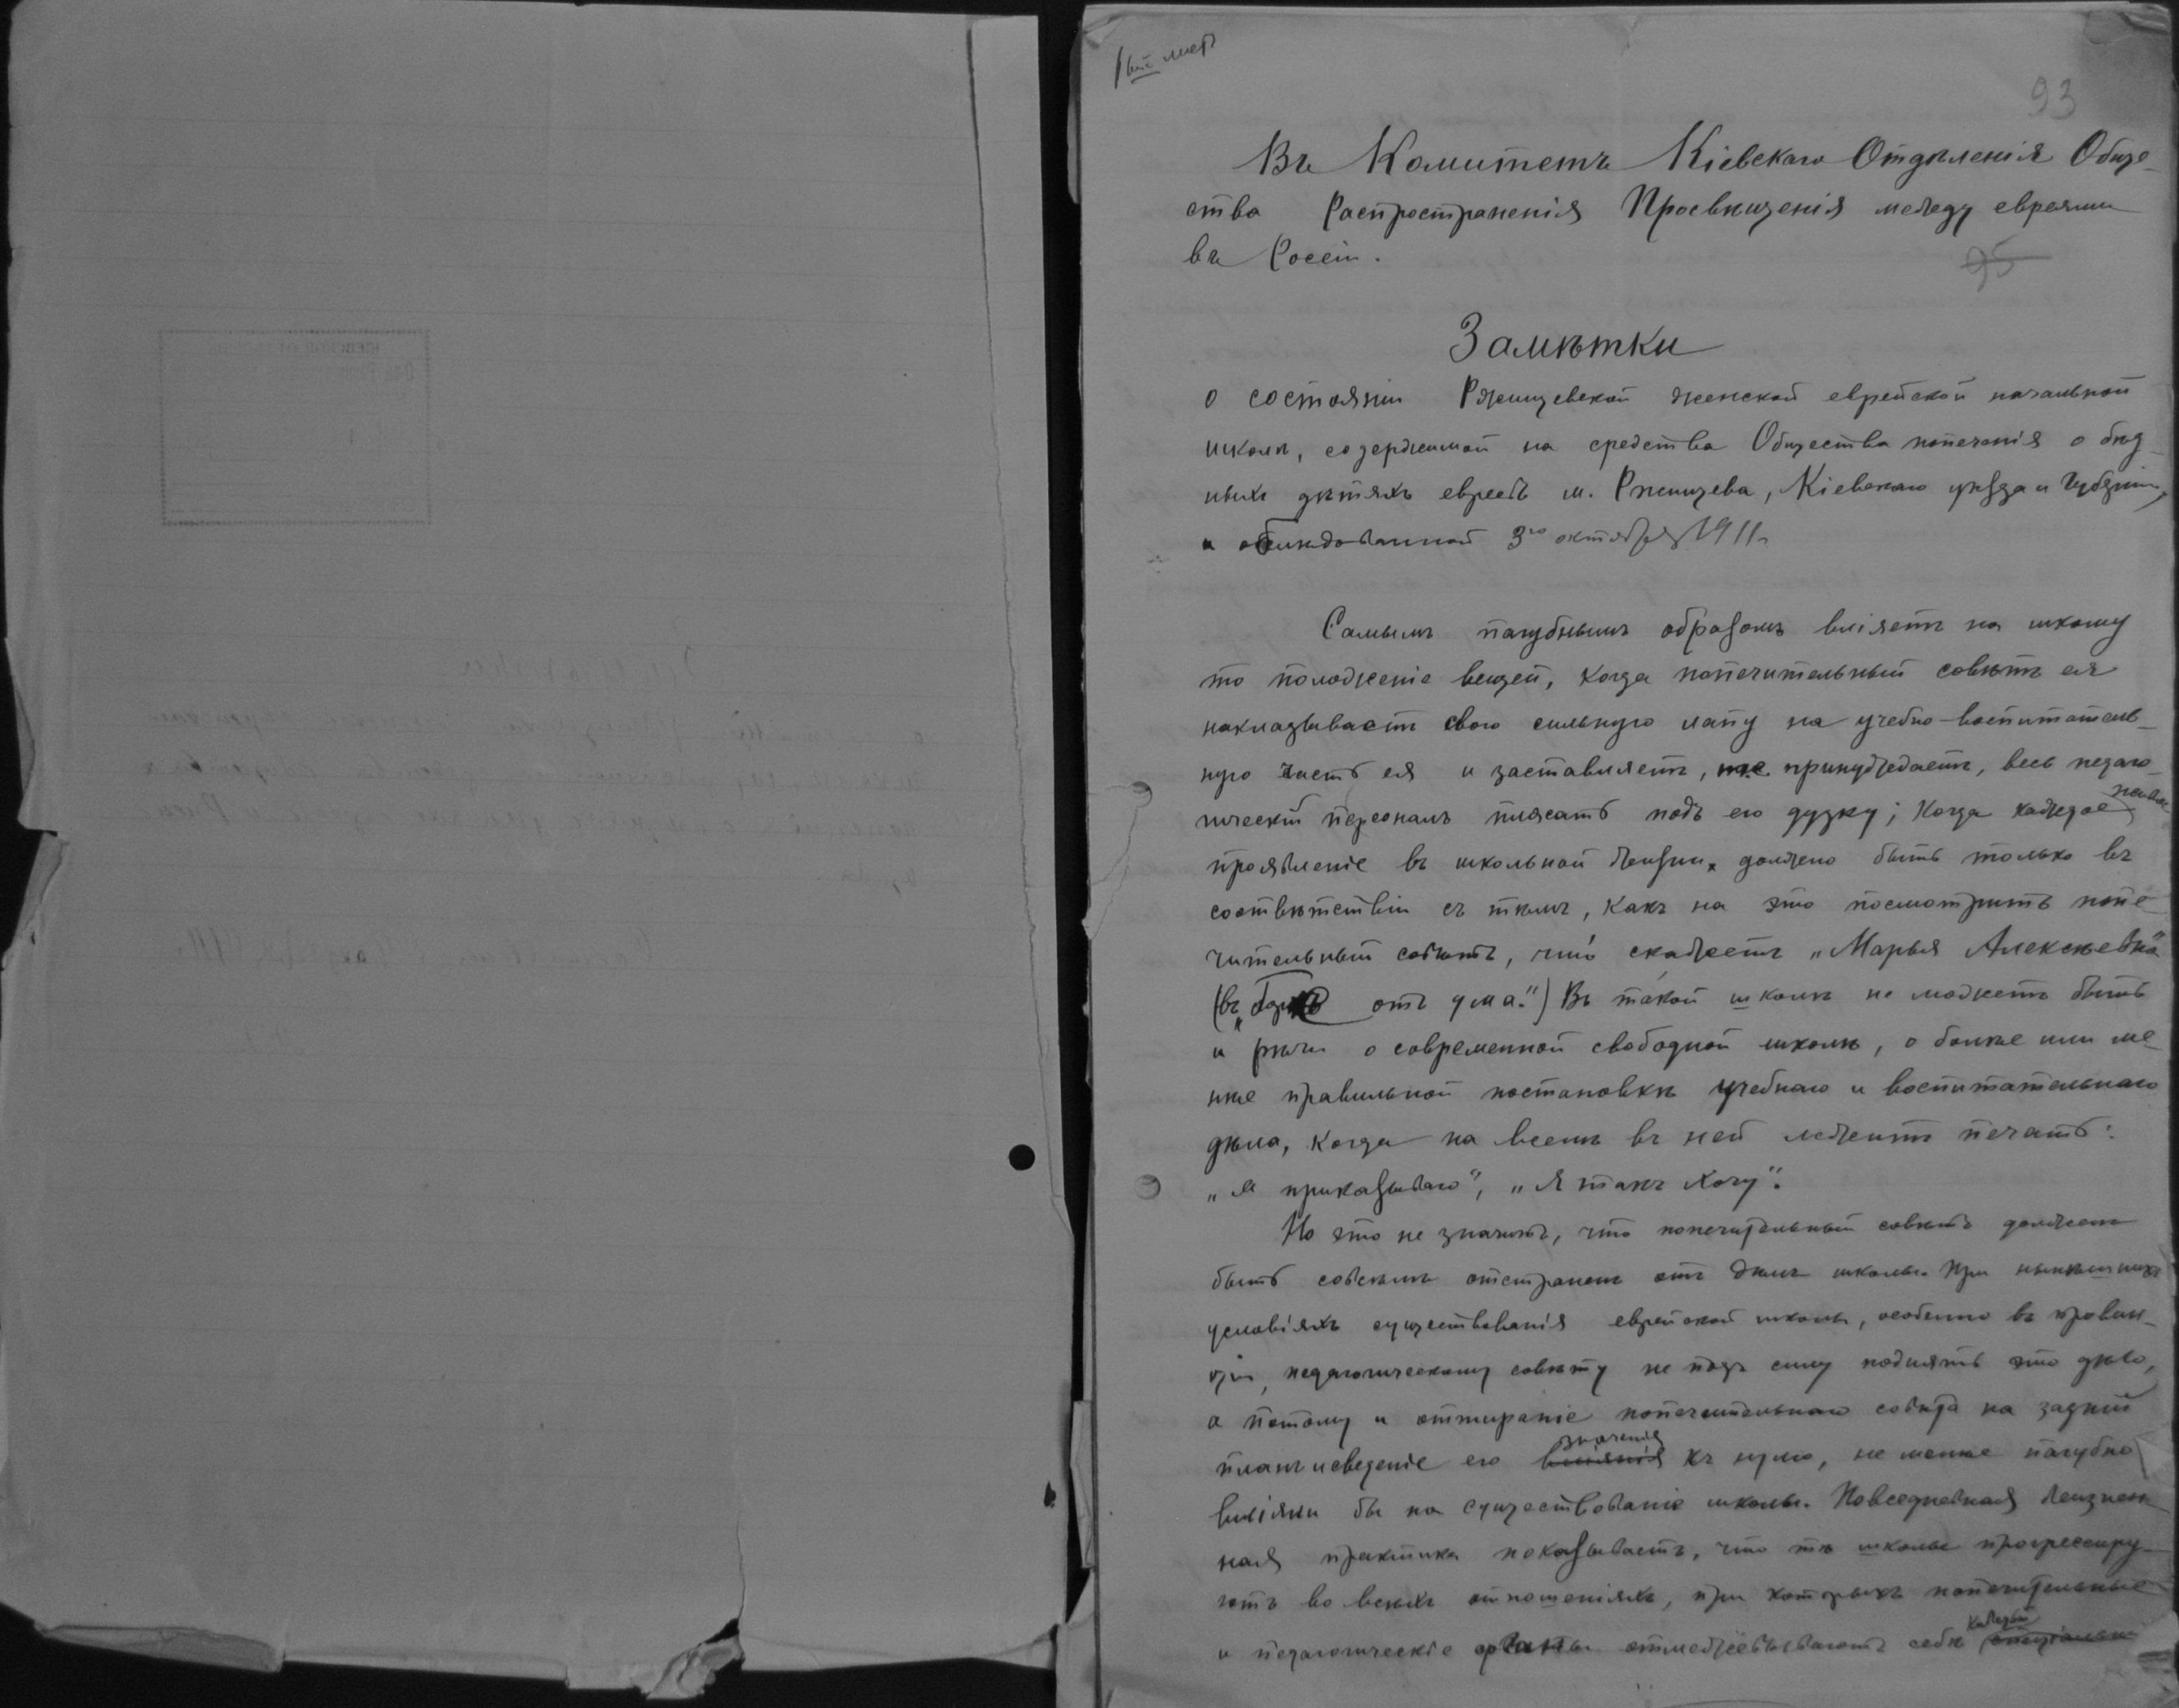 1ый листъ
93
Въ Комитетъ Кіевскаго Отдѣленія Обще-
ства Распространенія Просвѣщенія между евреями
въ Россіи.
95
Замѣтки
о состояніи Ржищевской женской еврейской начальной
школы, содержимой на средства Общества попеченія о бѣд-
ныхъ дѣтяхъ евреевъ м. Ржищева, Кіевскаго уѣзда и губерніи,
и обслѣдованной 3го октября 1911г.
Самымъ пагубнымъ образомъ вліяетъ на школу
то положеніе вещей, когда попечительный совѣтъ ея
накладываетъ свою сильную лапу на учебно-воспитатель-
ную часть ея и заставляетъ, принуждаетъ, весь педаго-
гическій персоналъ плясать подъ его дудку; когда каждое живое
проявленіе въ школьной жизни должно быть только въ
соотвѣтствіи съ тѣмъ, какъ на это посмотритъ попе-
чительный совѣтъ, что скажетъ „Марья Алексѣевна"
(въ „Горѣ отъ ума".) Въ такой школѣ не можетъ быть
и рѣчи о современной свободной школѣ, о болѣе или ме-
нѣе правильной постановкѣ учебнаго и воспитательнаго
дѣла, когда на всемъ въ ней лежитъ печать:
„Я приказываю", „Я такъ хочу".
Но это не значитъ, что попечительный совѣтъ долженъ
быть совсѣмъ отстраненъ отъ дѣлъ школы. При нынѣшнихъ
условіяхъ существованія еврейской школы, особенно въ провин-
ціи, педагогическому совѣту не подъ силу поднять это дѣло,
а потому и оттираніе попечительнаго совѣта на задній
планъ и сведеніе его вліянія значенія къ нулю, не менѣе пагубно
вліяли бы на существованіе школы. Повседневная жизнен-
ная практика показываетъ, что тѣ школы прогрессиру-
ютъ во всѣхъ отношеніяхъ, при которыхъ попечительные
и педагогическіе органы отмежевываютъ себѣ каждый